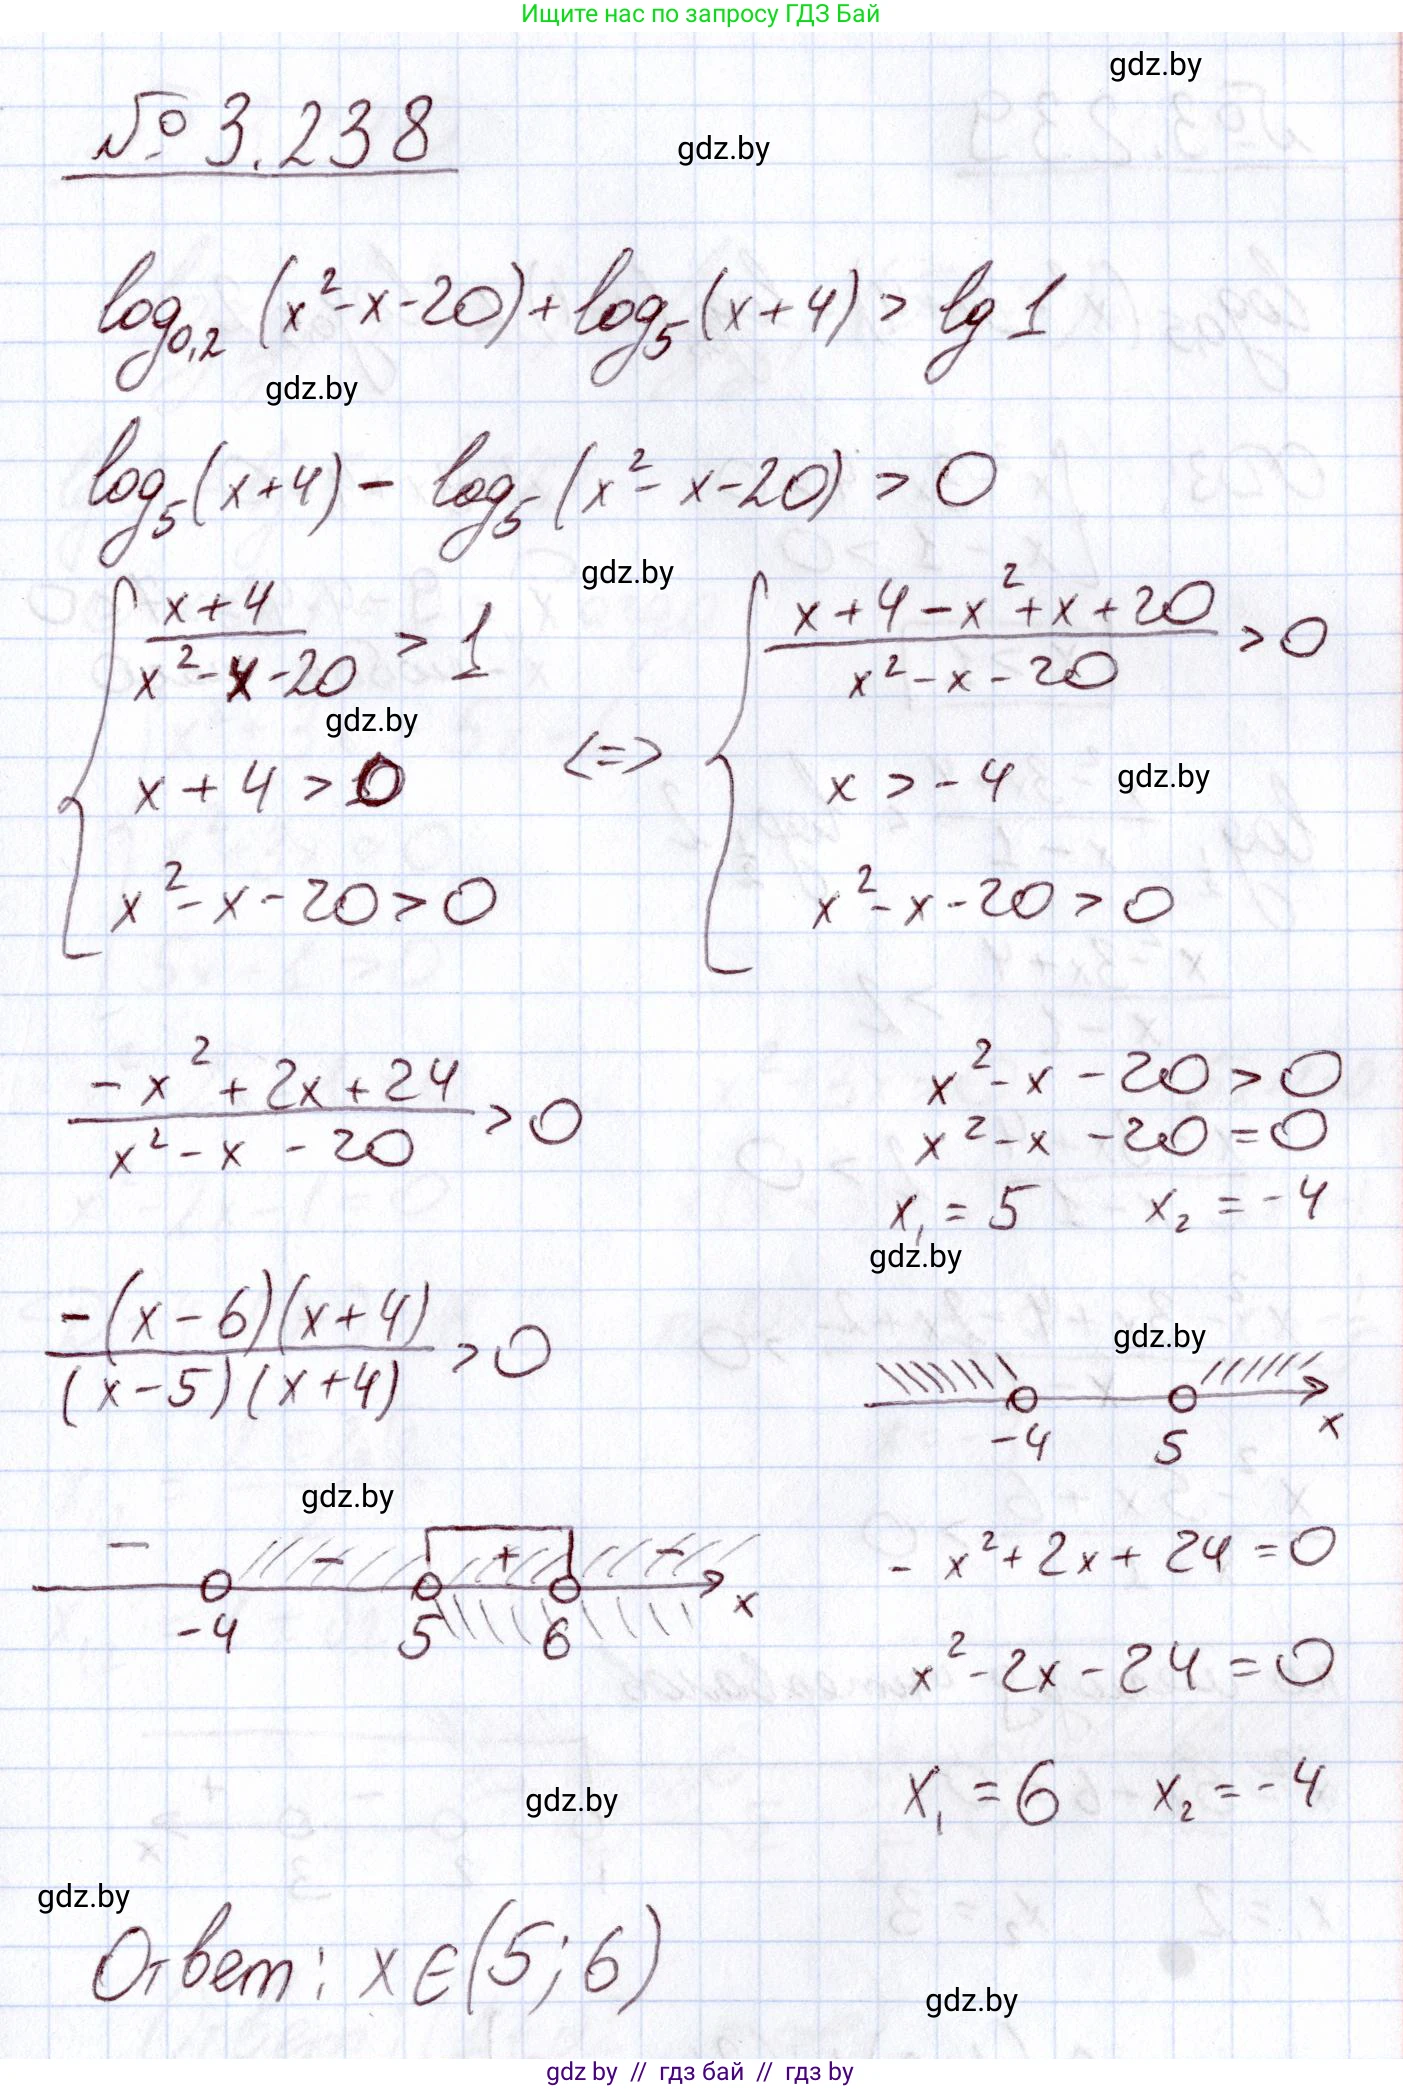 Ищите нас по запросу ГДЗ Бай
gdz.by
№ 3.238
gdz.by
log₀,₂ (x² - x - 20) + log₅ (x + 4) > lg 1
gdz.by
log₅ (x + 4) - log₅ (x² - x - 20) > 0
gdz.by
{ (x + 4)/(x² - x - 20) > 1 <=> { (x + 4 - x² + x + 20)/(x² - x - 20) > 0
gdz.by
x + 4 > 0 x > -4
gdz.by
x² - x - 20 > 0 x² - x - 20 > 0
(-x² + 2x + 24)/(x² - x - 20) > 0
x² - x - 20 > 0
x² - x - 20 = 0
x₁ = 5 x₂ = -4
gdz.by
(-(x - 6)(x + 4))/((x - 5)(x + 4)) > 0
gdz.by
-4 5 x
gdz.by
- - + -
-4 5 6 x
-x² + 2x + 24 = 0
x² - 2x - 24 = 0
x₁ = 6 x₂ = -4
gdz.by
gdz.by
Ответ: x ∈ (5; 6)
gdz.by
gdz by // гдз бай // гдз by